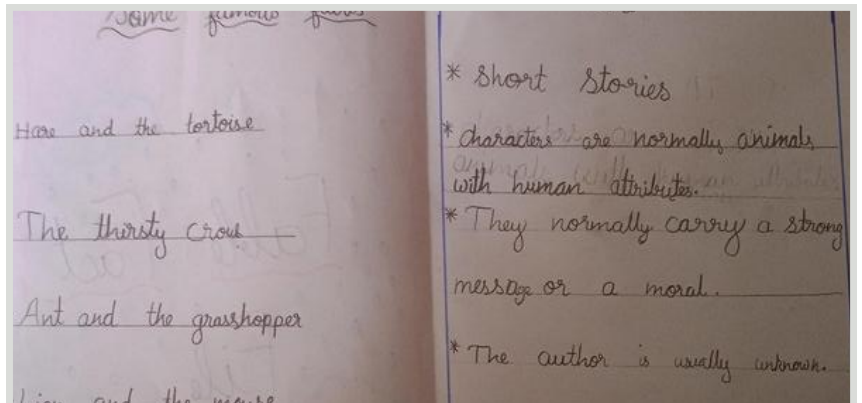 Some famous
Hare and the tortoise
The thirsty crow
Ant and the grasshopper
Lion and the mouse
* Short Stories
* characters are normally animals
with human attributes.
* They normally carry a strong
message or a moral.
* The author is usually unknown.